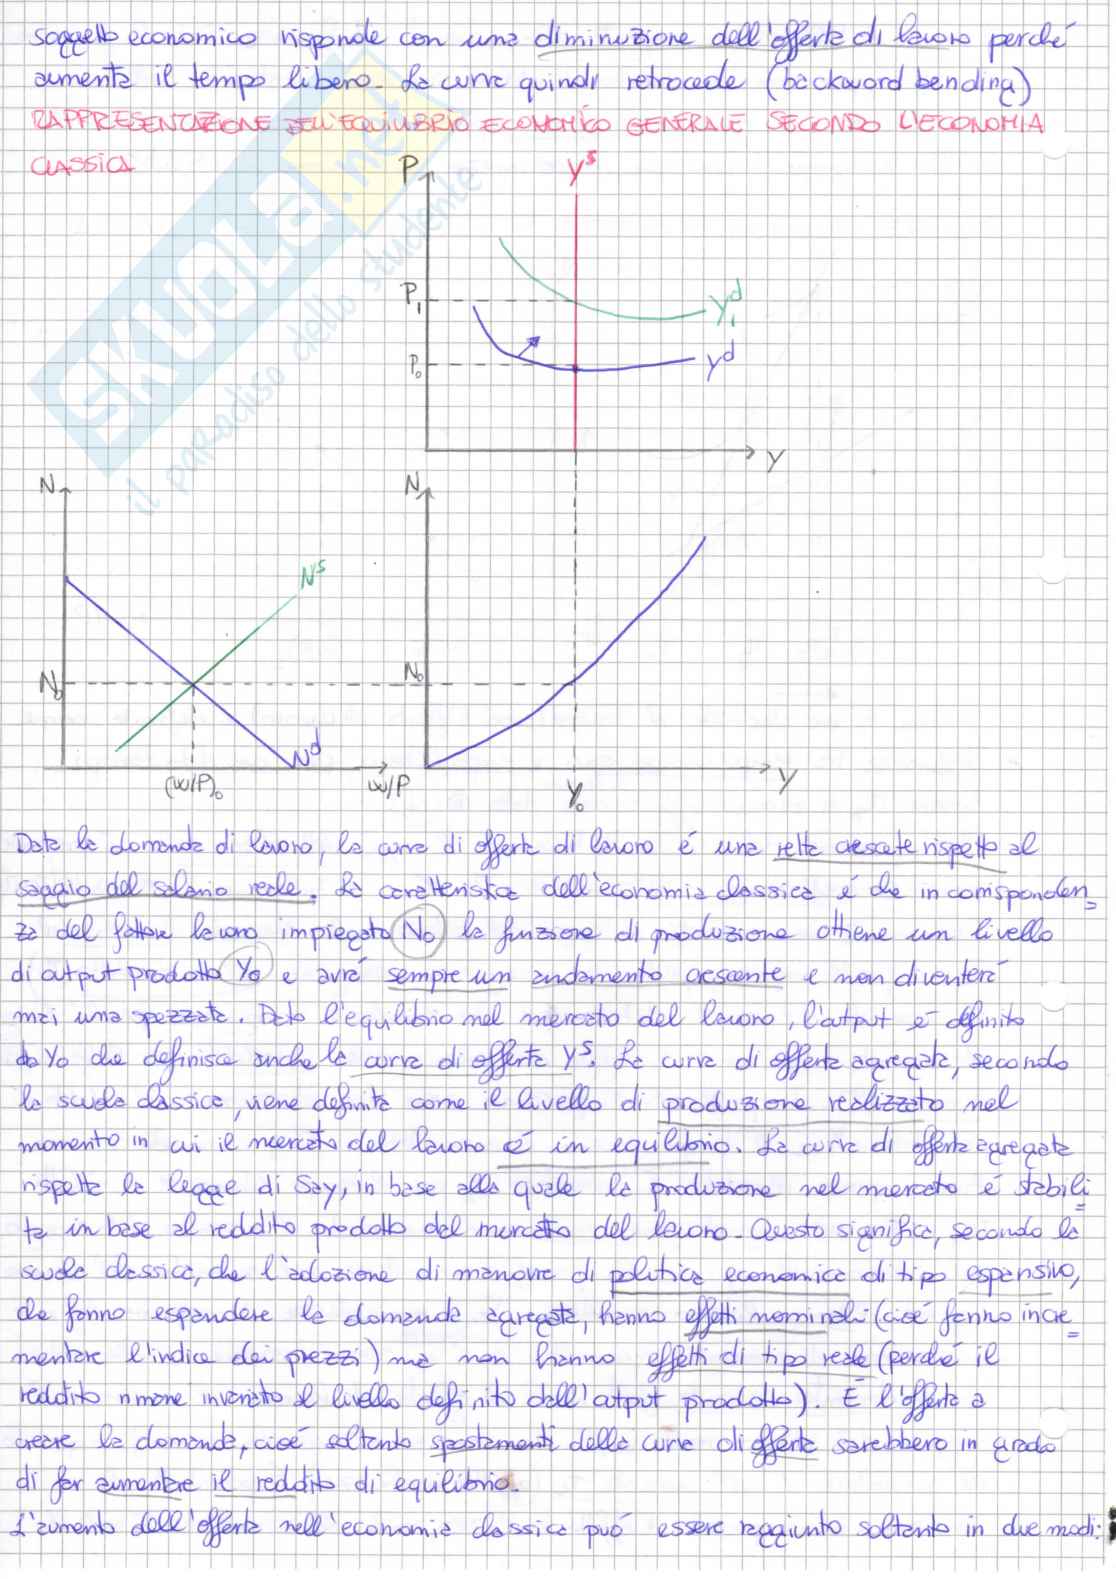 soggetto economico risponde con una diminuzione dell'offerta di lavoro perché
aumenta il tempo libero. La curva quindi retrocede (backword bending)
RAPPRESENTAZIONE DELL'EQUILIBRIO ECONOMICO GENERALE SECONDO L'ECONOMIA
CLASSICA
SKUOLA.net
il paradiso dello studente
P
Yˢ
P₁
Y₁ᵈ
P₀
Yᵈ
Y
N
N
Nˢ
N₀
N₀
Nᵈ
(W/P)₀
W/P
Y₀
Y
Data la domanda di lavoro, la curva di offerta di lavoro é una retta crescete rispetto al
saggio del salario reale. La caratteristica dell'economia classica é che in corrisponden=
za del fattore lavoro impiegato N₀ la funzione di produzione ottiene un livello
di output prodotto Y₀ e avrá sempre un andamento crescente e non diventerá
mai una spezzata. Dato l'equilibrio nel mercato del lavoro, l'output é definito
da Y₀ che definisce anche la curva di offerta Yˢ. La curva di offerta agregata, secondo
la scuola classica, viene definita come il livello di produzione realizzato nel
momento in cui il mercato del lavoro é in equilibrio. La curva di offerta agregata
rispetta la legge di Say, in base alla quale la produzione nel mercato é stabili
=
ta in base al reddito prodotto dal mercato del lavoro. Questo significa, secondo la
scuola classica, che l'adozione di manovre di politica economica di tipo espansivo,
che fanno espandere la domanda agregata, hanno effetti nominali (cioé fanno incre
=
mentare l'indice dei prezzi) ma non hanno effetti di tipo reale (perché il
reddito rimane invariato al livello definito dall'output prodotto). É l'offerta a
creare la domanda, cioé soltanto spostamenti della curva di offerta sarebbero in grado
di far aumentare il reddito di equilibrio.
L'aumento dell'offerta nell'economia classica puó essere raggiunto soltanto in due modi: